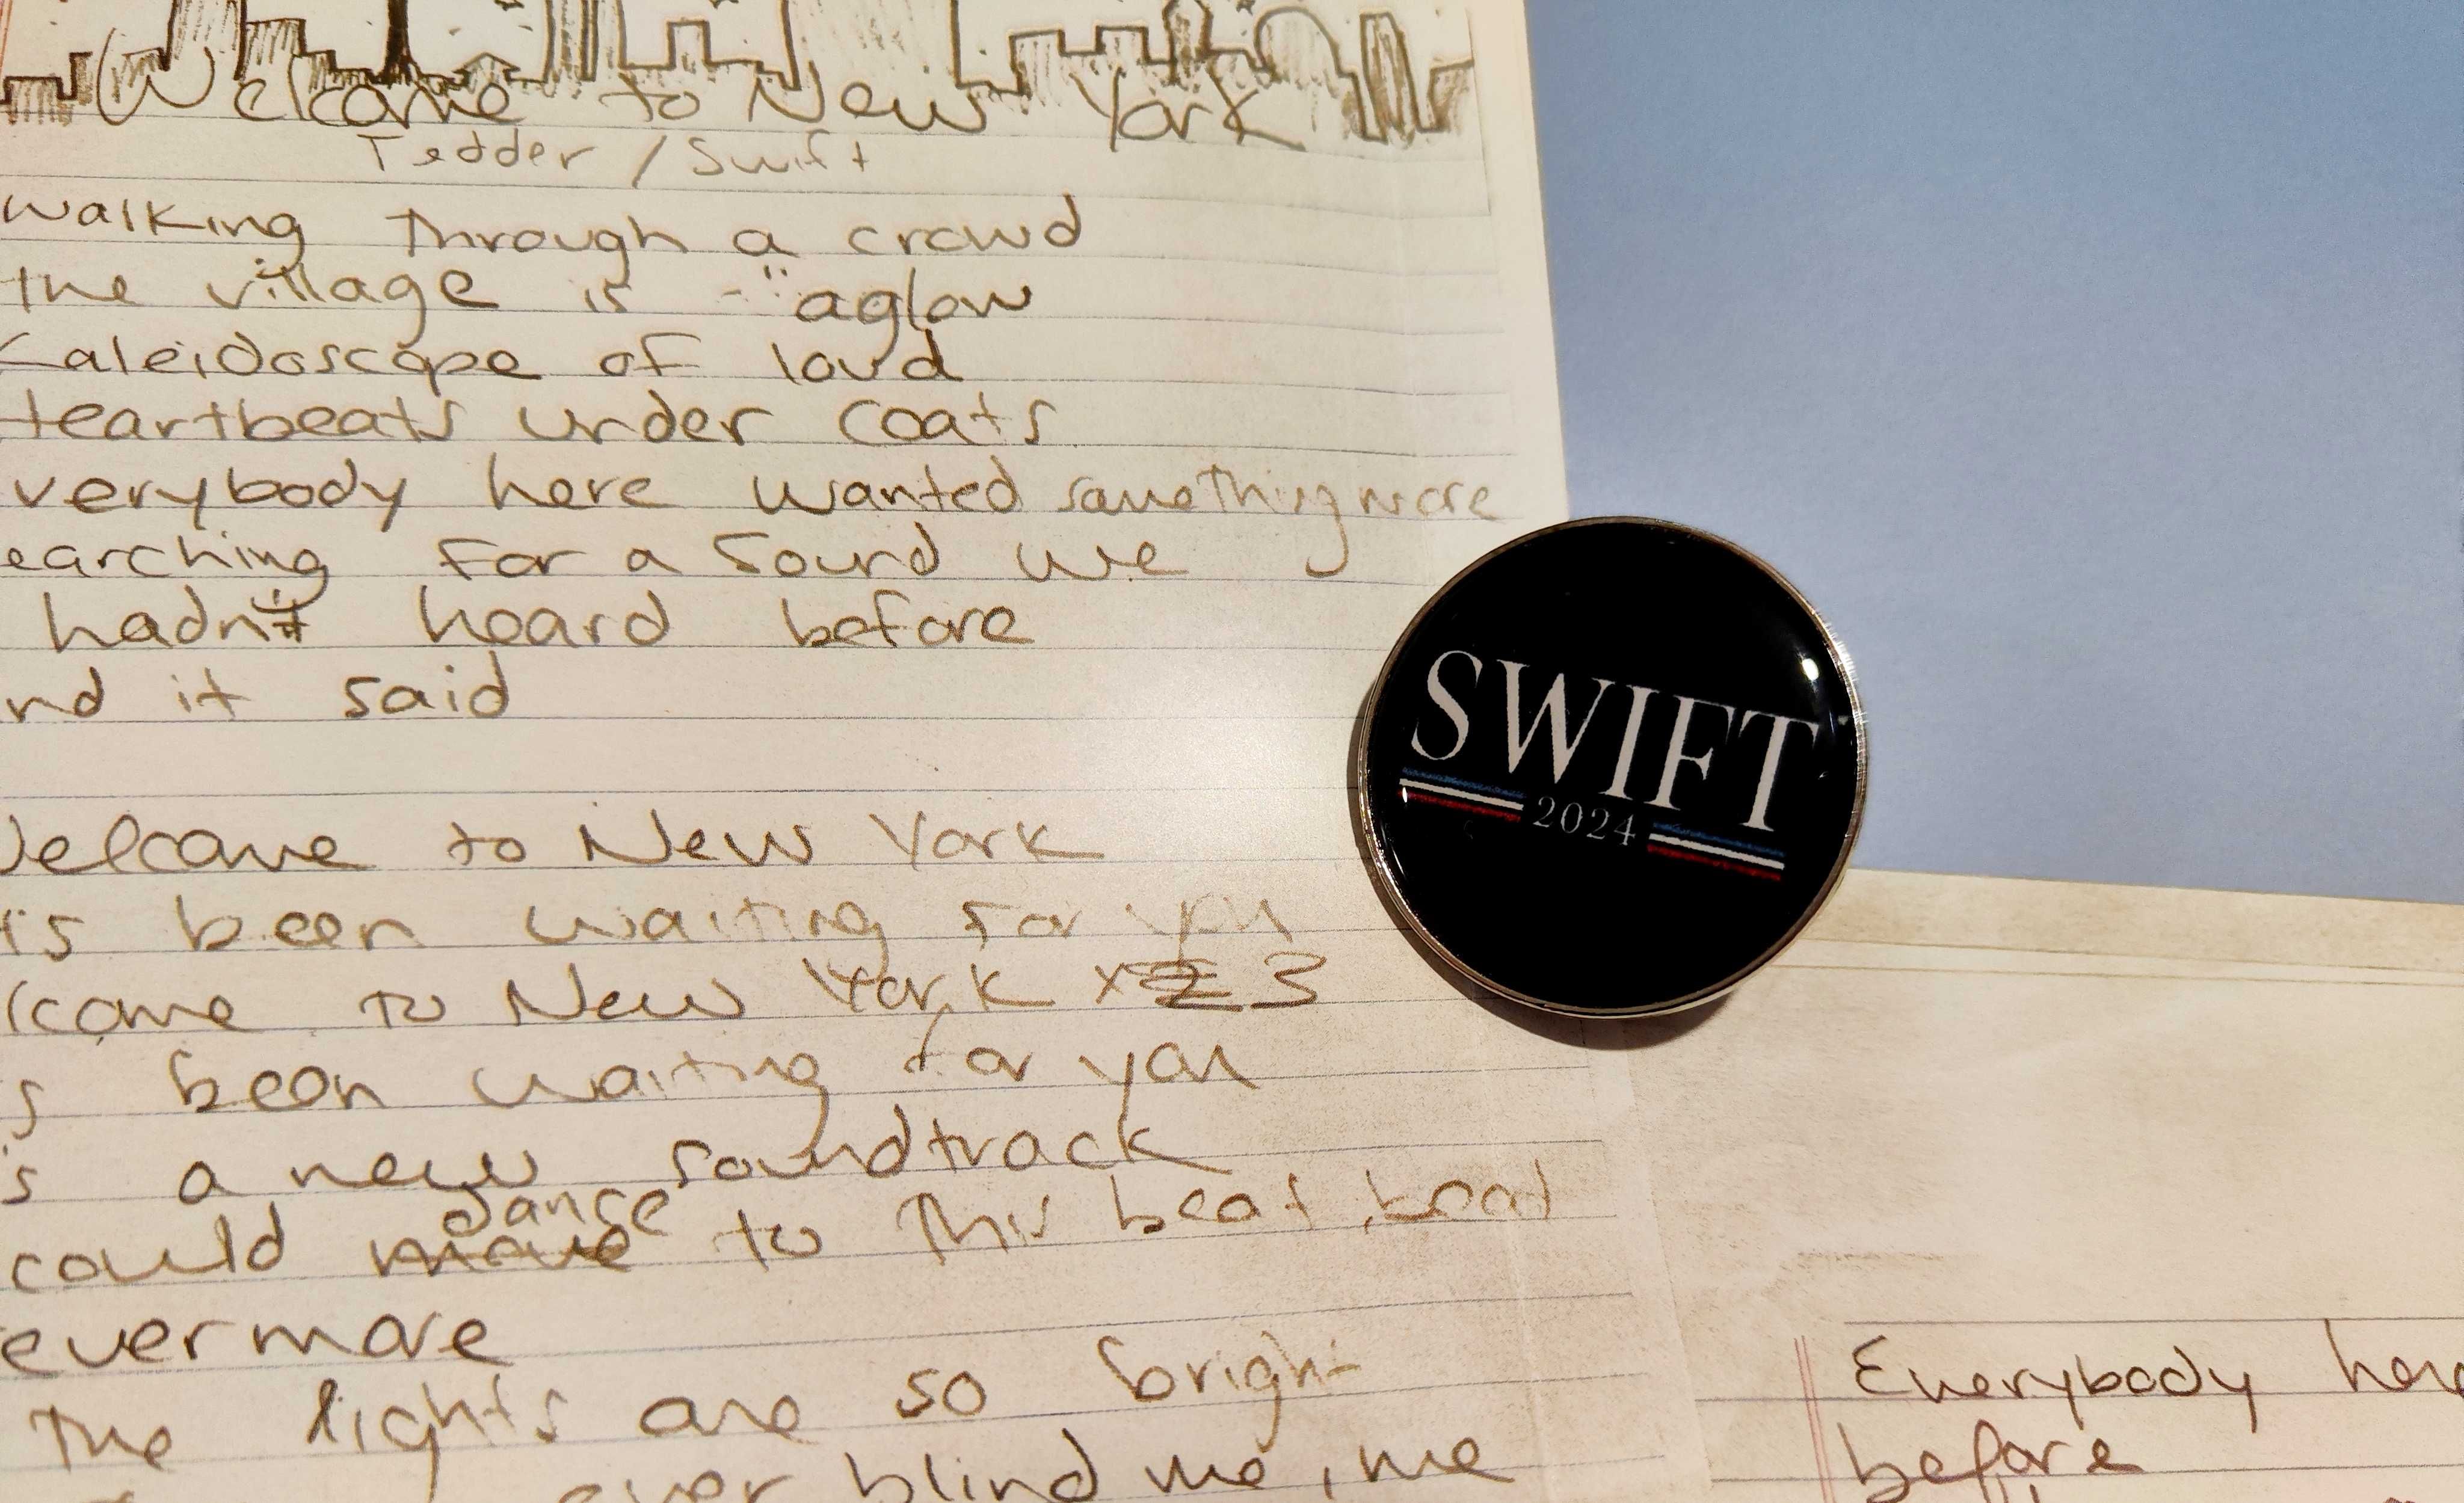 Welcome to New York
Tedder / Swift
walking through a crowd
the village is aglow
Kaleidoscope of loud
Heartbeats under coats
verybody here wanted something more
earching for a sound we
hadn't heard before
nd it said
Welcome to New York
t's been waiting for you
lcome to New York x2 3
s been waiting for you
s a new soundtrack
dance
could move to this beat, beat
evermore
The lights are so bright
ever blind me, me
SWIFT
2024
Everybody here
before